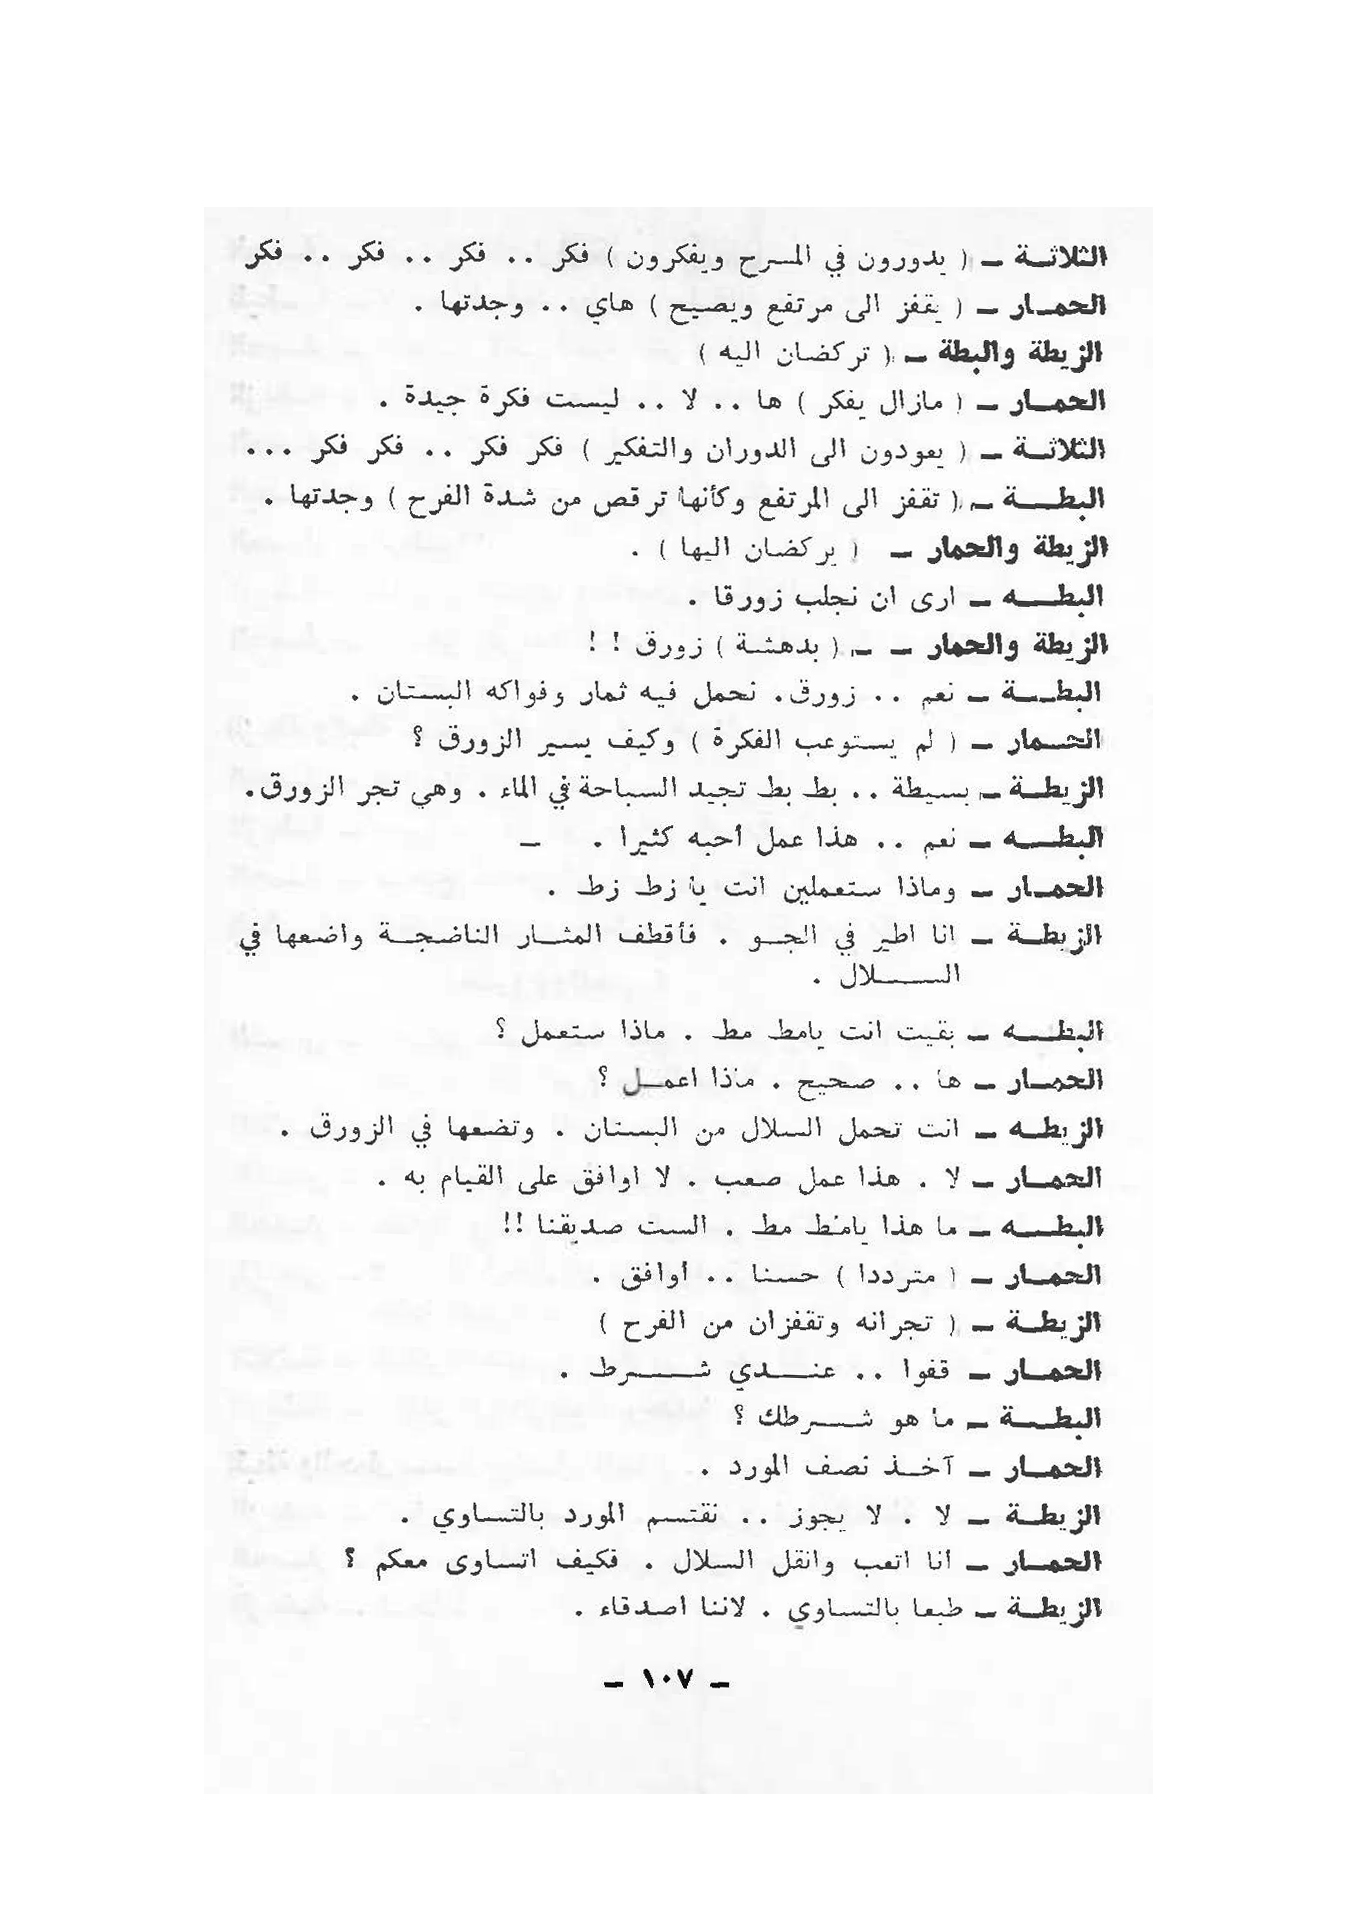 الثلاثــة ــ ( يدورون في المسرح ويفكرون ) فكر .. فكر .. فكر .. فكر
الحمــار ــ ( يقفز الى مرتفع ويصيح ) هاي .. وجدتها .
الزيطة والبطة ــ ( تركضان اليه )
الحمــار ــ ( مازال يفكر ) ها .. لا .. ليست فكرة جيدة .
الثلاثــة ــ ( يعودون الى الدوران والتفكير ) فكر فكر .. فكر فكر ...
البطـــة ــ ( تقفز الى المرتفع وكأنها ترقص من شدة الفرح ) وجدتها .
الزيطة والحمار ــ ( يركضان اليها ) .
البطـــه ــ ارى ان نجلب زورقا .
الزيطة والحمار ــ ــ ( بدهشة ) زورق ! !
البطـــة ــ نعم .. زورق. نحمل فيه ثمار وفواكه البستان .
الحــمار ــ ( لم يستوعب الفكرة ) وكيف يسير الزورق ؟
الزيطــة ــ بسيطة .. بط بط تجيد السباحة في الماء . وهي تجر الزورق.
البطـــه ــ نعم .. هذا عمل أحبه كثيرا . ــ
الحمــار ــ وماذا ستعملين انت يا زط زط .
الزيطــة ــ انا اطير في الجــو . فأقطف المثــار الناضجــة واضعها في
الســـلال .
البطـــه ــ بقيت انت يامط مط . ماذا ستعمل ؟
الحمــار ــ ها .. صحيح . ماذا اعمــل ؟
الزيطــه ــ انت تحمل السلال من البستان . وتضعها في الزورق .
الحمــار ــ لا . هذا عمل صعب . لا اوافق على القيام به .
البطـــه ــ ما هذا يامط مط . الست صديقنا !!
الحمــار ــ ( مترددا ) حسنا .. أوافق .
الزيطــة ــ ( تجرانه وتقفزان من الفرح )
الحمــار ــ قفوا .. عنـــدي شـــرط .
البطـــة ــ ما هو شـــرطك ؟
الحمــار ــ آخــذ نصف المورد .
الزيطــة ــ لا . لا يجوز .. نقتسم المورد بالتساوي .
الحمــار ــ أنا اتعب وانقل السلال . فكيف اتساوى معكم ؟
الزيطــة ــ طبعا بالتساوي . لاننا اصدقاء .
ــ ١٠٧ ــ